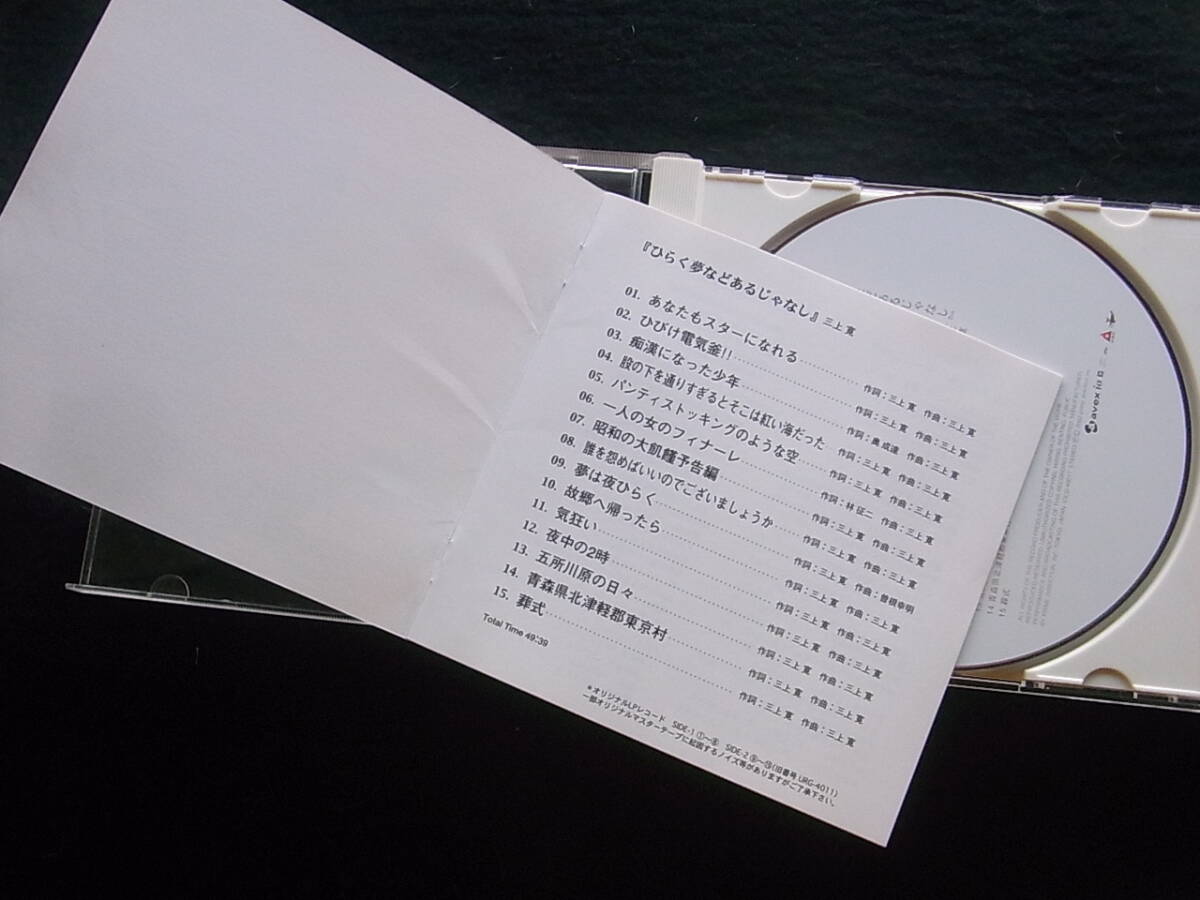 『ひらく夢などあるじゃなし』 三上 寛
01. あなたもスターになれる 作詞：三上 寛 作曲：三上 寛
02. ひびけ電気釜!! 作詞：三上 寛 作曲：三上 寛
03. 痴漢になった少年 作詞：奥成達 作曲：三上 寛
04. 股の下を通りすぎるとそこは紅い海だった 作詞：三上 寛 作曲：三上 寛
05. パンティストッキングのような空 作詞：三上 寛 作曲：三上 寛
06. 一人の女のフィナーレ 作詞：林 征二 作曲：三上 寛
07. 昭和の大飢饉予告編 作詞：三上 寛 作曲：三上 寛
08. 誰を怨めばいいのでございましょうか 作詞：三上 寛 作曲：三上 寛
09. 夢は夜ひらく 作詞：三上 寛 作曲：曽根幸明
10. 故郷へ帰ったら 作詞：三上 寛 作曲：三上 寛
11. 気狂い 作詞：三上 寛 作曲：三上 寛
12. 夜中の2時 作詞：三上 寛 作曲：三上 寛
13. 五所川原の日々 作詞：三上 寛 作曲：三上 寛
14. 青森県北津軽郡東京村 作詞：三上 寛 作曲：三上 寛
15. 葬式 作詞：三上 寛 作曲：三上 寛
Total Time 49:39
＊オリジナルLPレコード SIDE-1 ①〜⑧ SIDE-2 ⑨〜⑮(旧番号 URG-4011)
一部オリジナルマスターテープに起因するノイズ等がありますがご了承下さい。
avex io